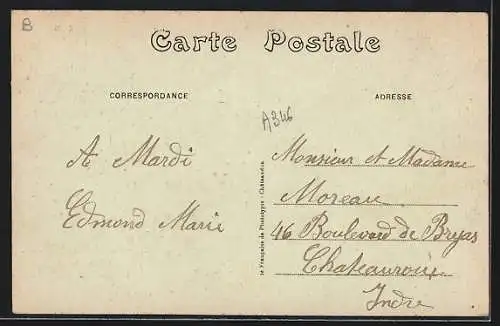 B
Carte Postale
CORRESPONDANCE
ADRESSE
A346
A Mardi
Edmond Marie
Monsieur et Madame
Moreau
46 Boulevard de Bryas
Chateauroux
Indre
Française de Phototypie - Châteaudun